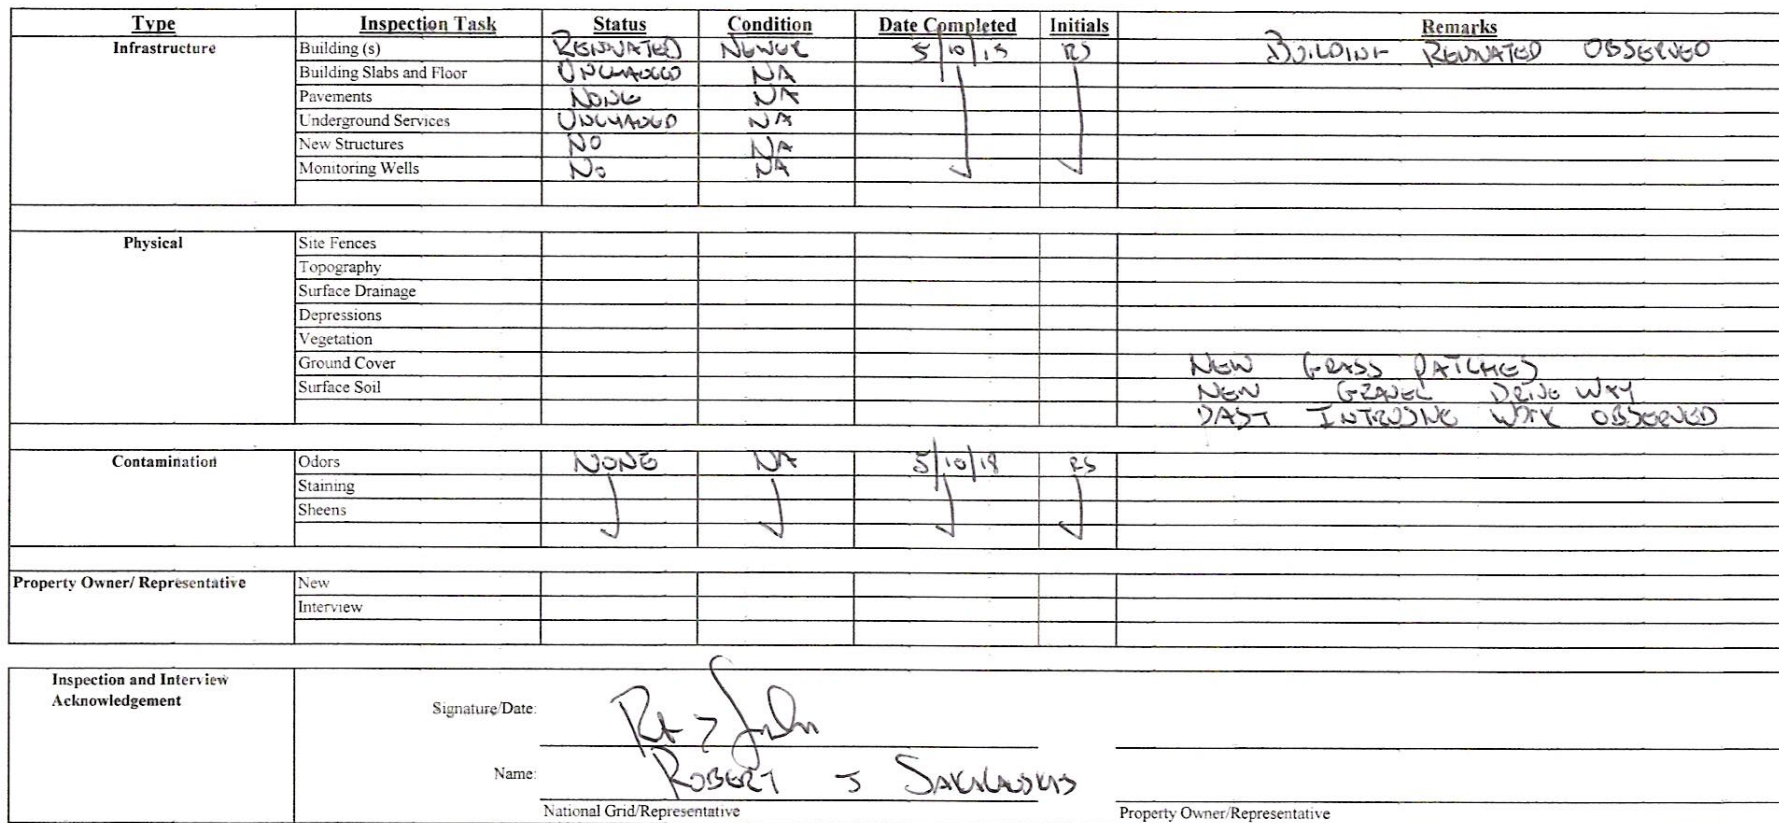 Type Inspection Task Status Condition Date Completed Initials Remarks
Infrastructure Building (s) RENOVATED NEWER 5/10/18 RS BUILDING RENOVATED OBSERVED
Building Slabs and Floor UNCHANGED NA
Pavements NONE NA
Underground Services UNCHANGED NA
New Structures NO NA
Monitoring Wells No NA
Physical Site Fences
Topography
Surface Drainage
Depressions
Vegetation
Ground Cover NEW GRASS PATCHES
Surface Soil NEW GRAVEL DRIVE WAY
PAST INTRUSIVE WORK OBSERVED
Contamination Odors NONE NA 5/10/18 RS
Staining
Sheens
Property Owner/ Representative New
Interview
Inspection and Interview
Acknowledgement
Signature/Date:
Name: ROBERT J
National Grid/Representative Property Owner/Representative